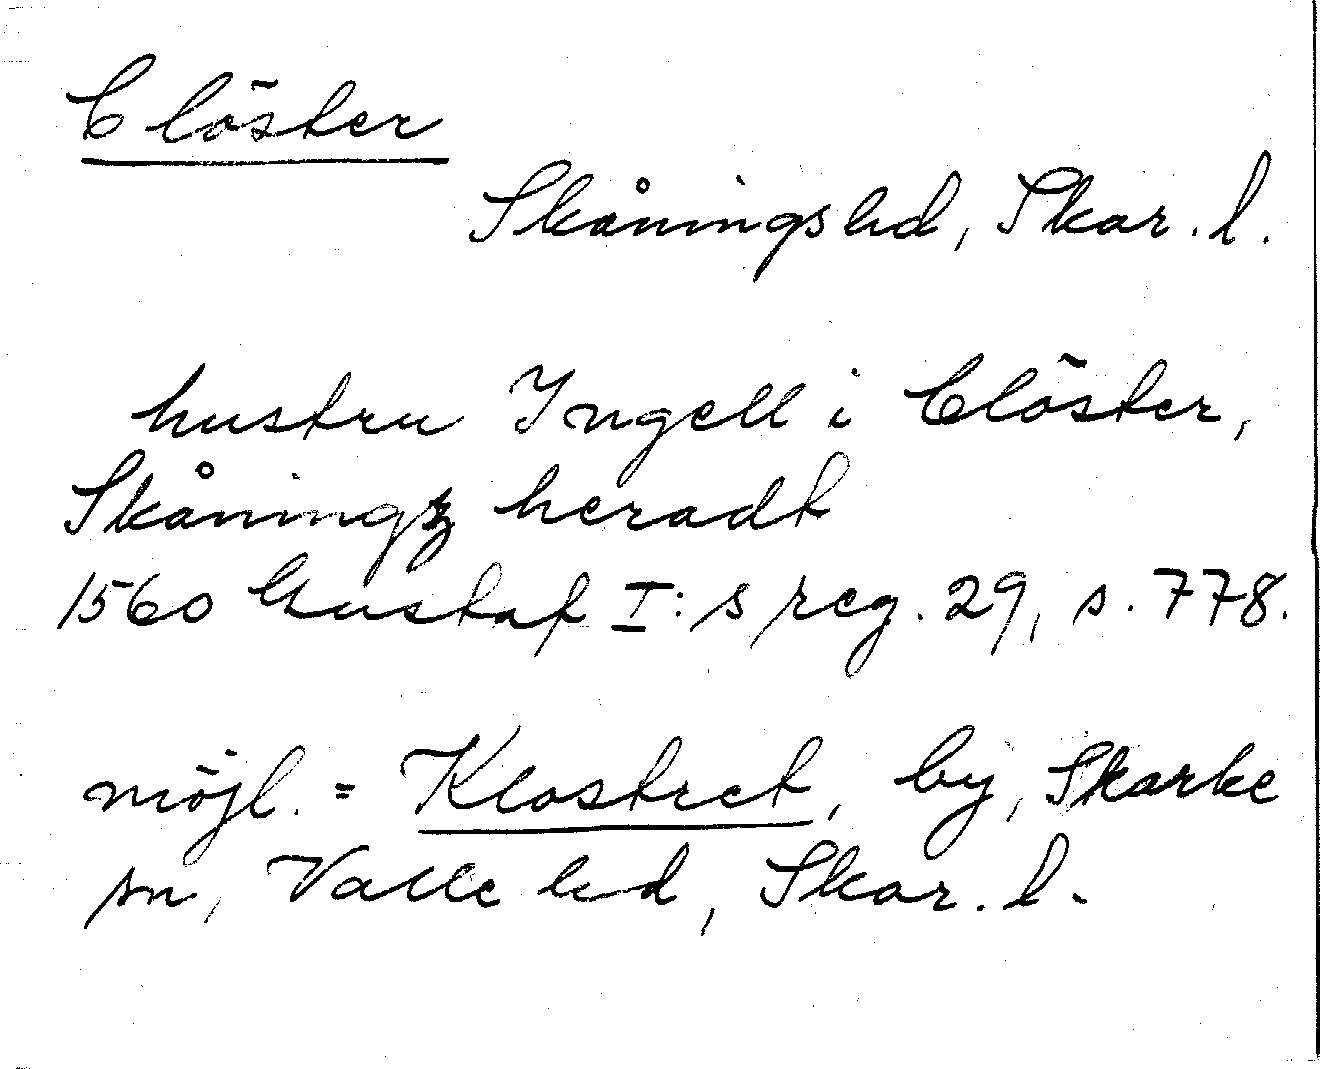 Clöster
Skånings hd, Skar. l.
hustru Ingell i Clöster,
Skåningz heradt
1560 Gustaf I:s reg. 29, s. 778.
möjl. = Klostret, by, Skarke
sn, Valle hd, Skar. l.